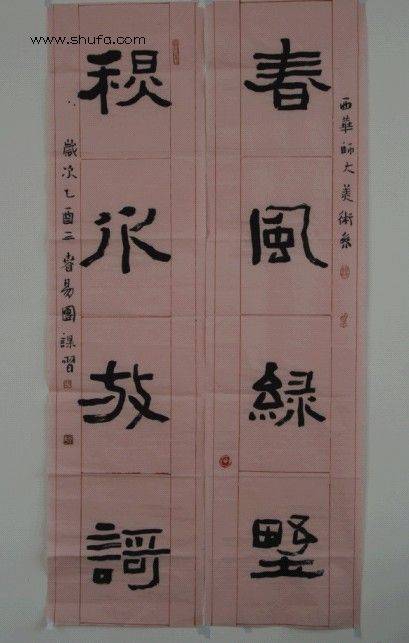 www.shufa.com
西華師大美術系
春風緑墅
水放謌
歲次乙酉二易團課習